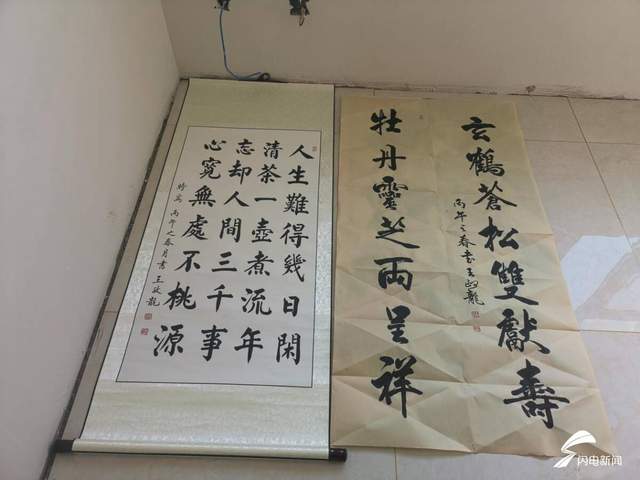 人生難得幾日閑
清茶一壺煮流年
忘却人間三千事
心寬無處不桃源
時為 丙午之春月書 王政龍
玄鶴蒼松雙獻壽
丙午之春書王政龍
牡丹靈芝兩呈祥
闪电新闻